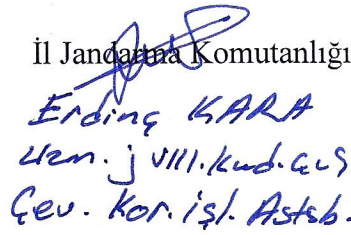 İl Jandarma Komutanlığı
Erdinç KARA
Uzm. j VIII. kad. çvş
Çev. Kor. işl. Astsb.